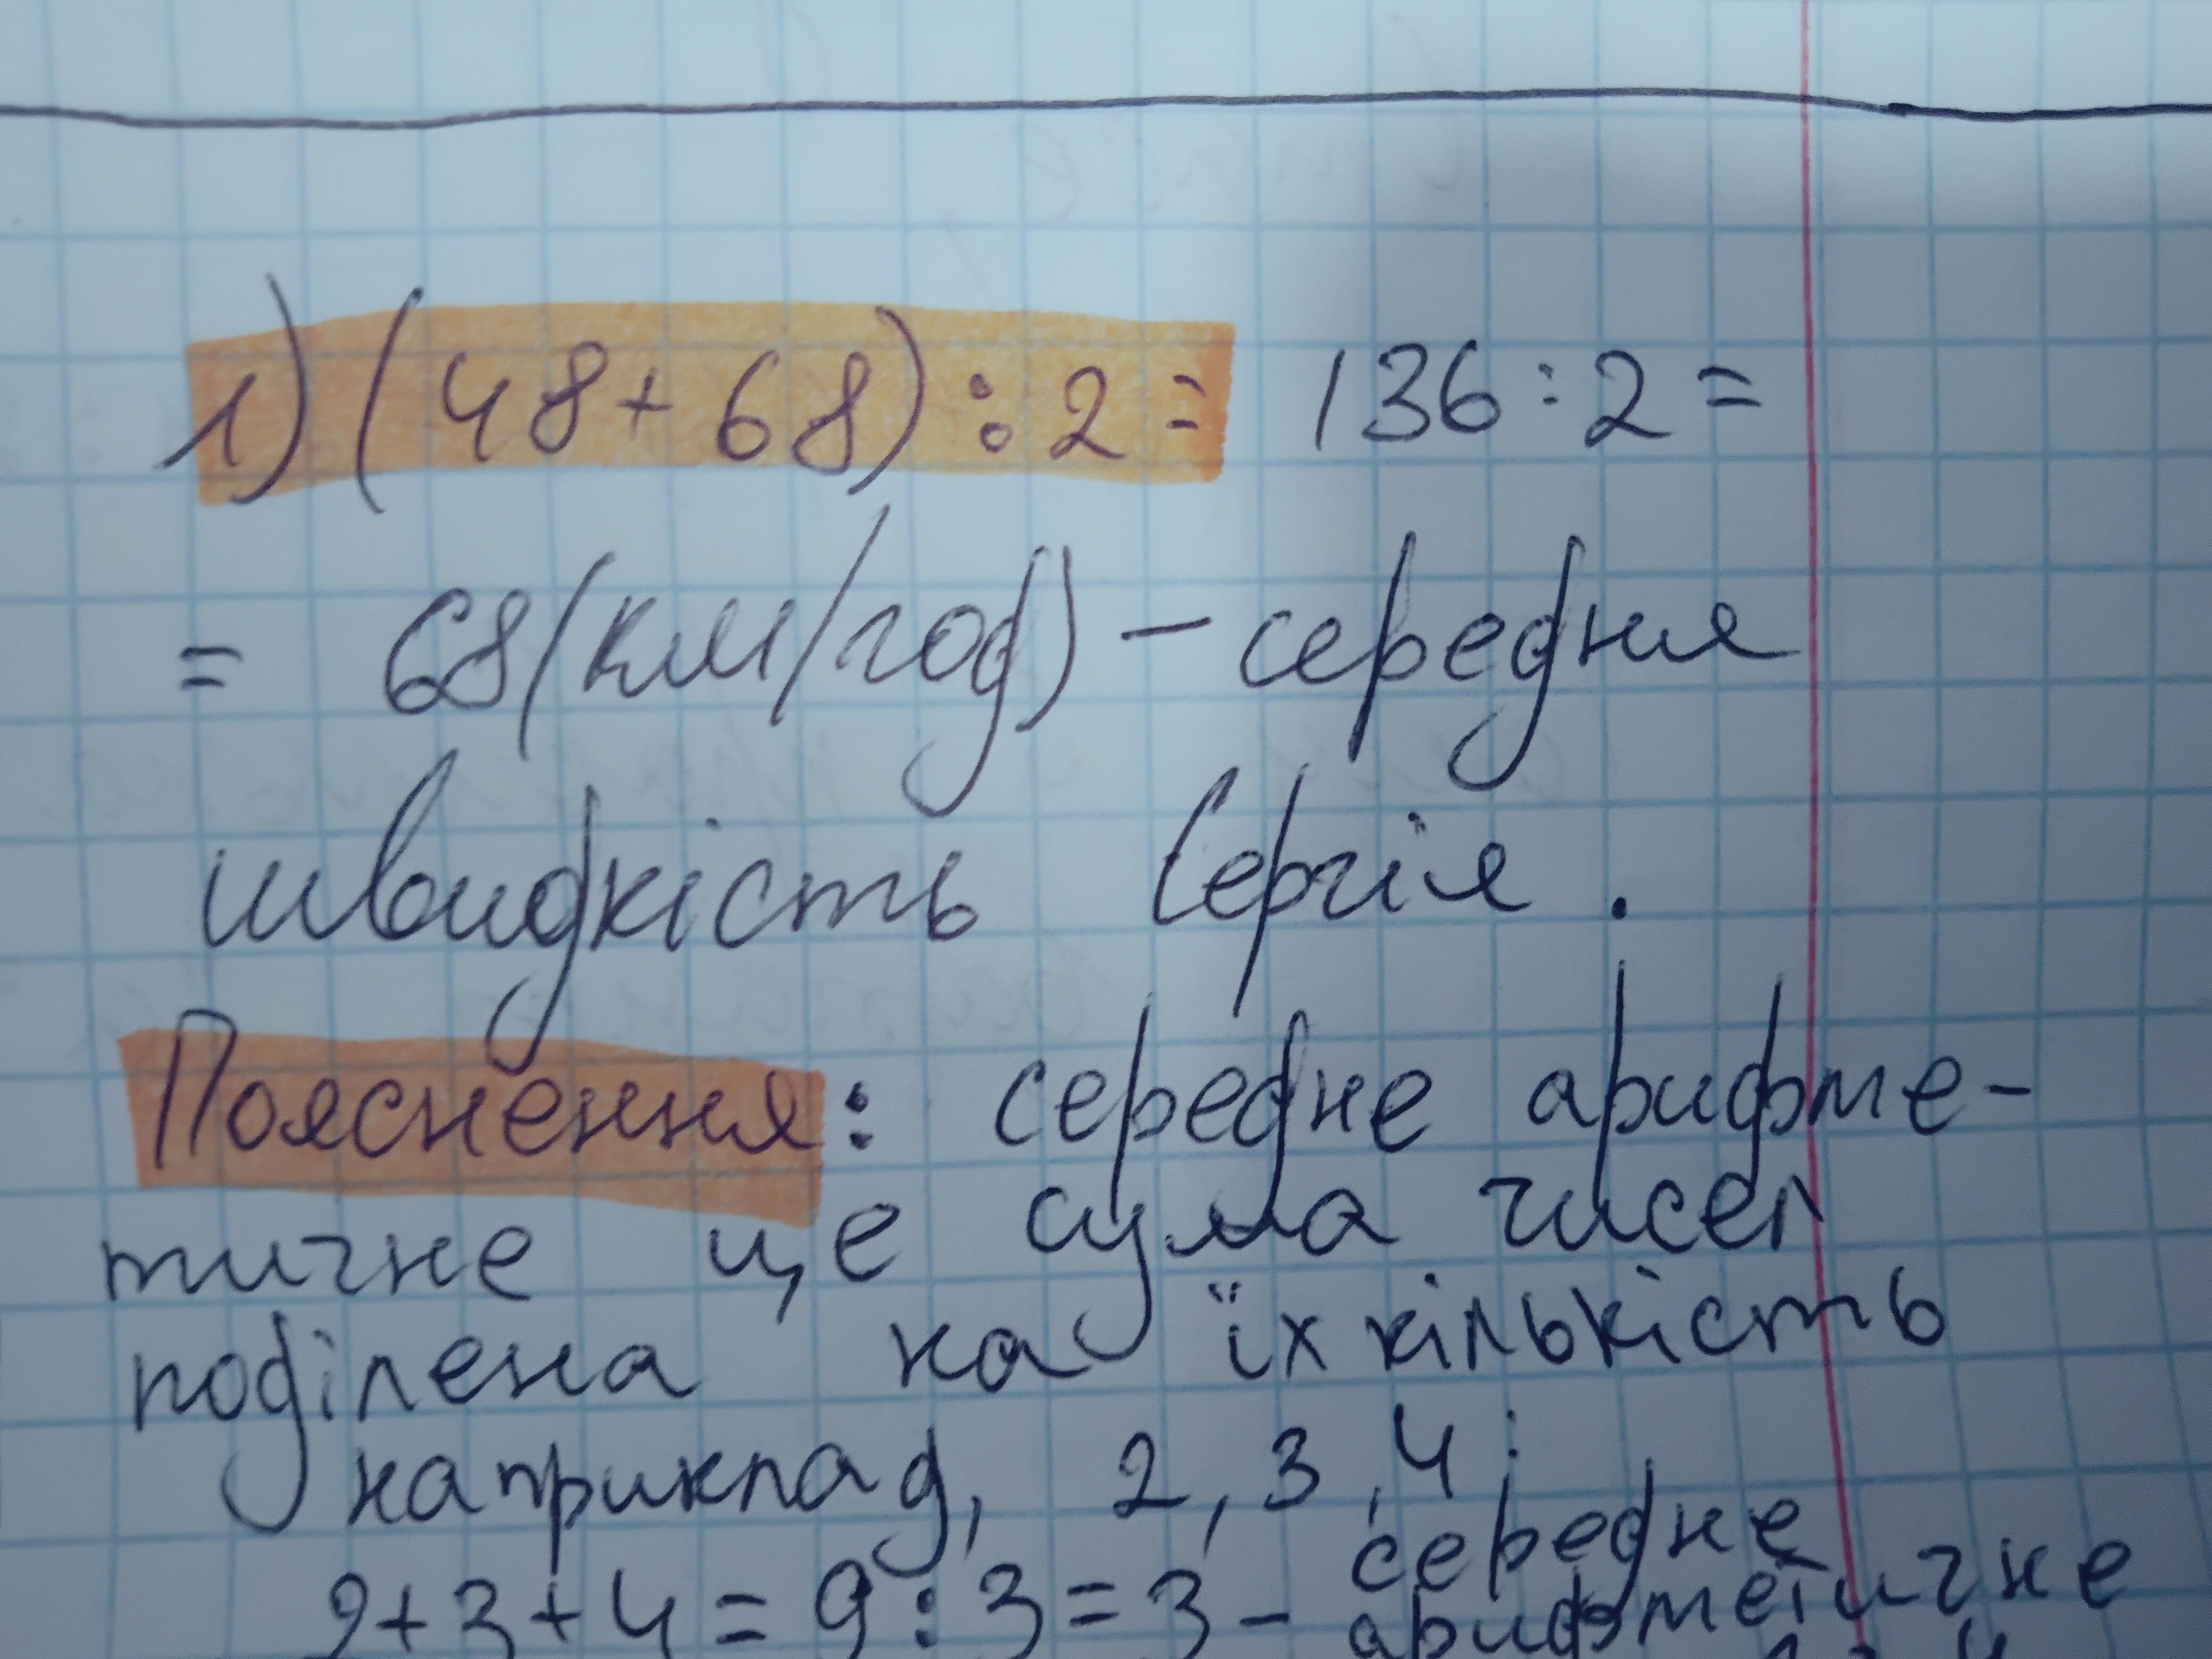 1) (48+68) : 2 = 136 : 2 =
= 68 (км/год) – середня
швидкість Сергія.
Пояснення: середнє арифме-
тичне це сума чисел
поділена на їх кількість
наприклад, 2, 3, 4 :
2+3+4 = 9 : 3 = 3 – середнє
арифметичне